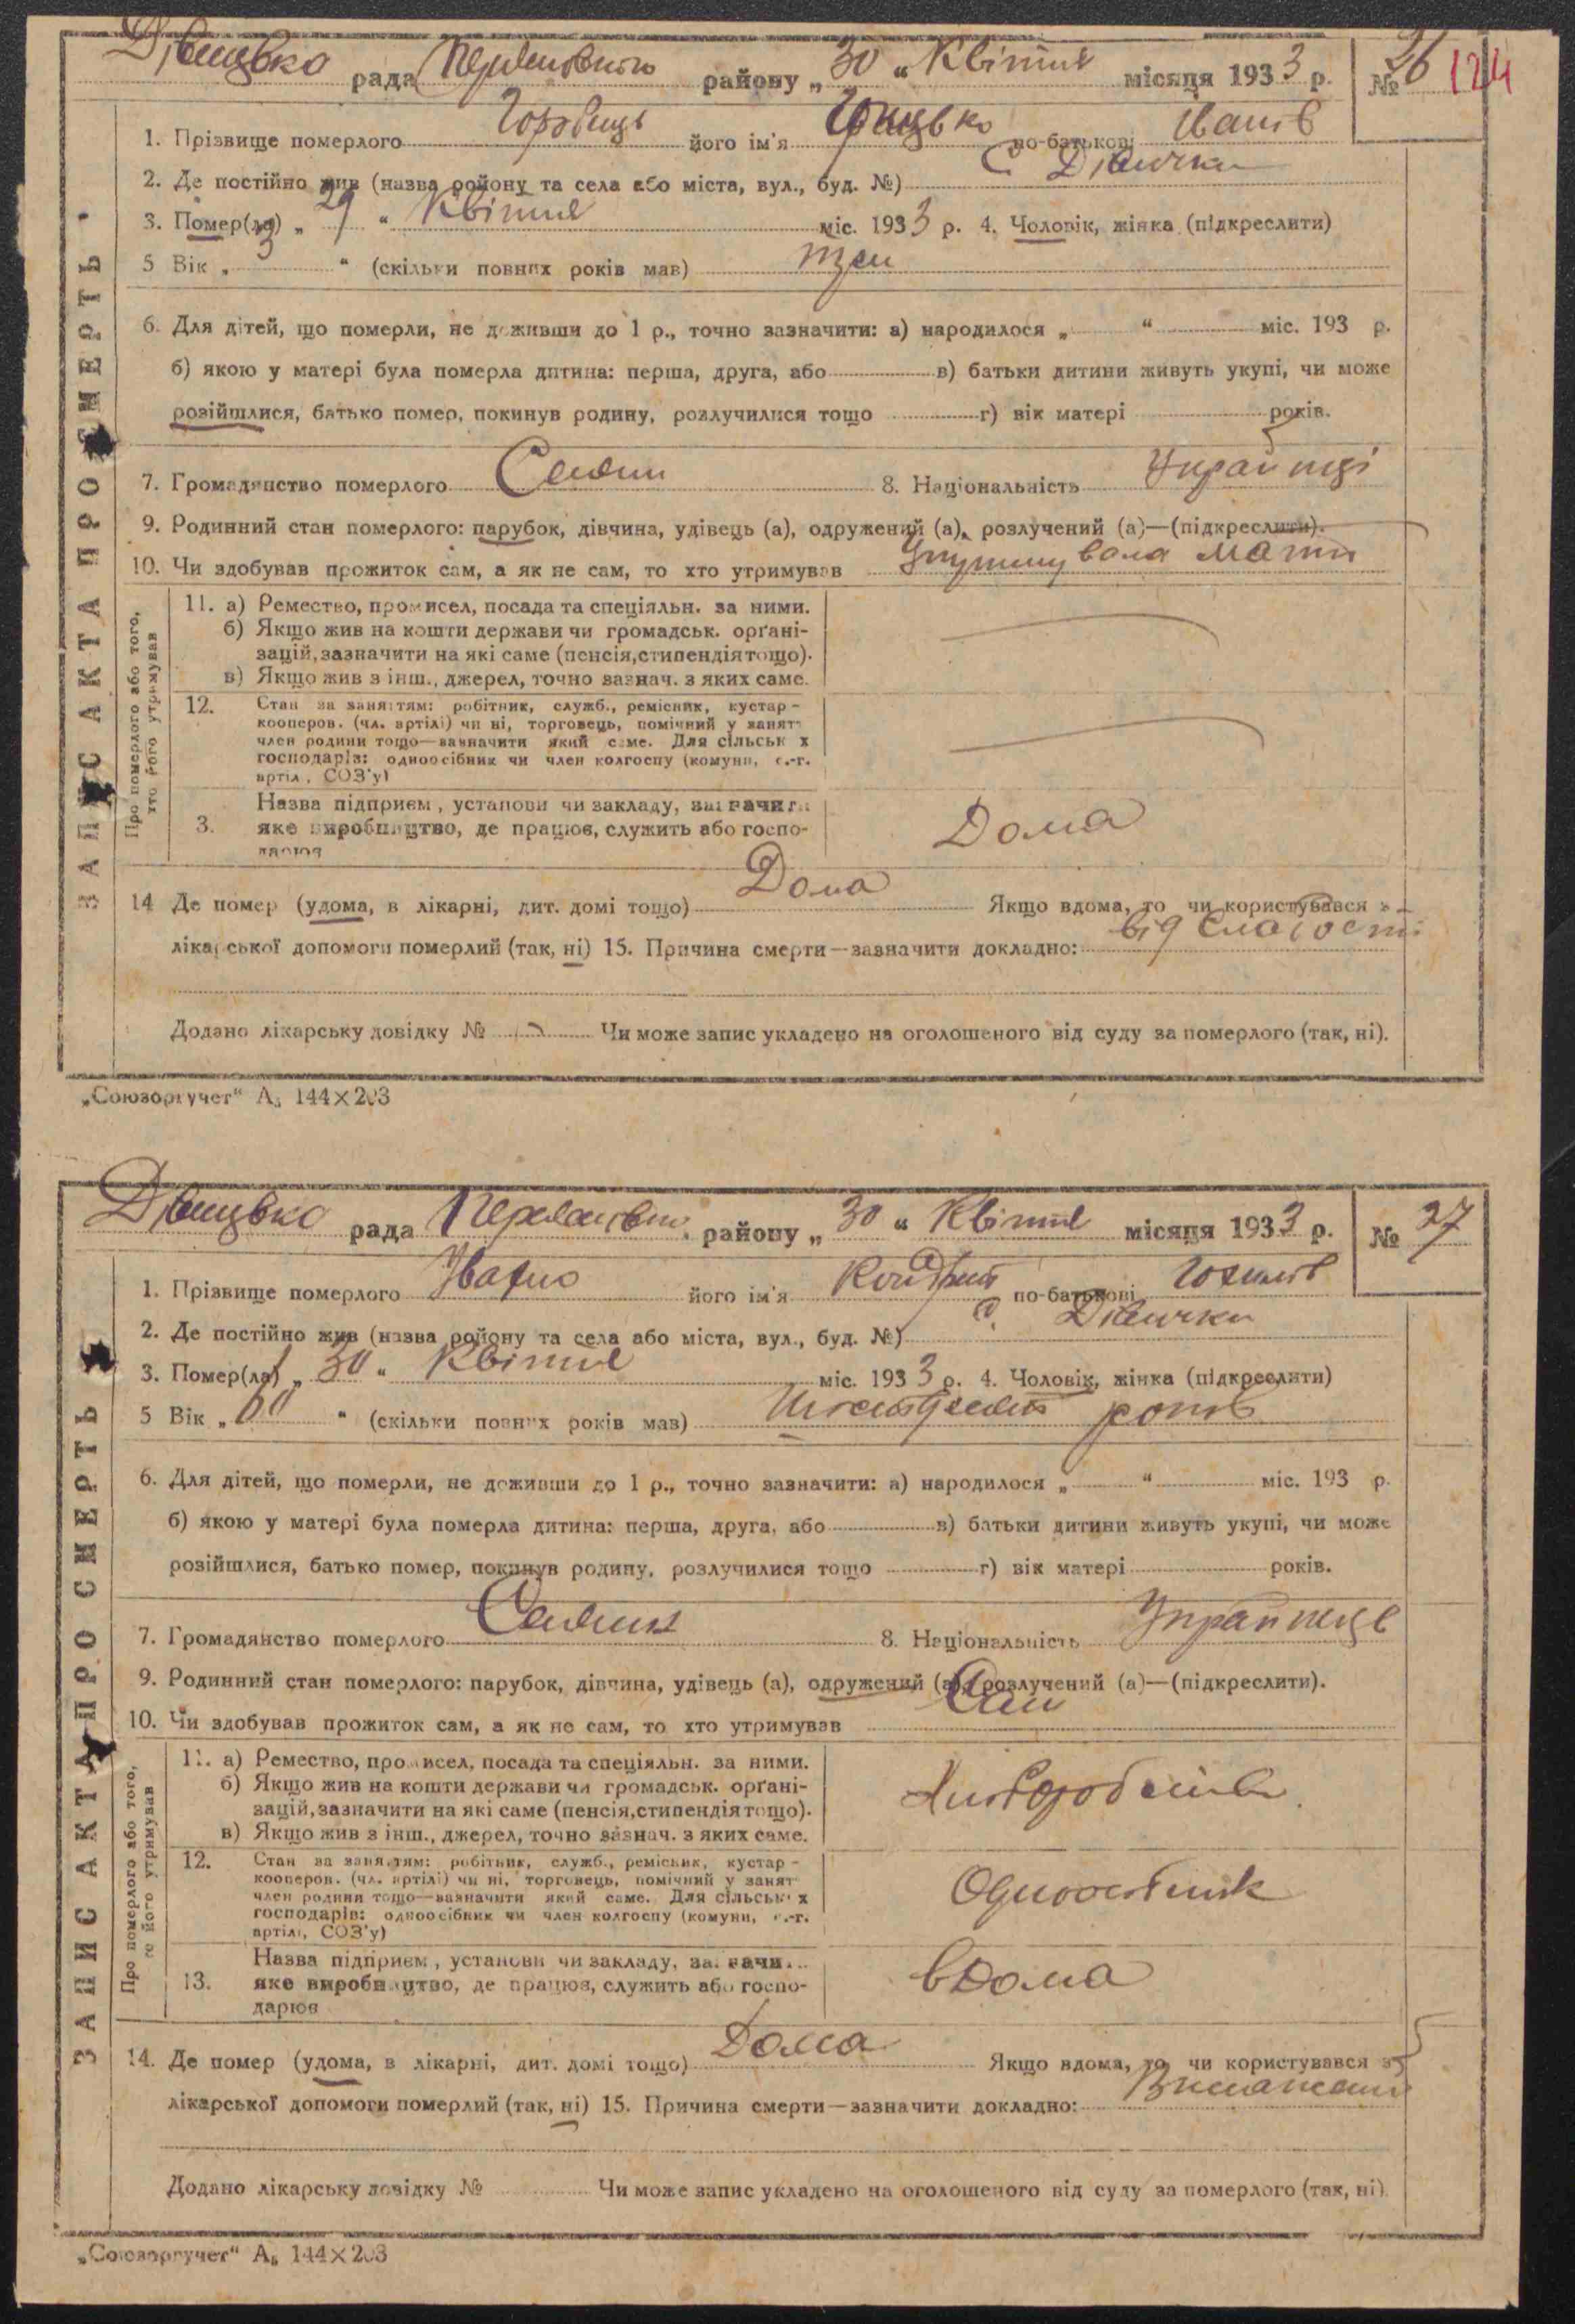 Дівицько рада Переяславського району „30“ Квітня місяця 1933 р. № 26 124
1. Прізвище померлого Горовиць його ім'я Грицько по-батькові Іванів
2. Де постійно жив (назва району та села або міста, вул., буд. №) С Дівички
3. Помер(ла) „29“ Квітня міс. 1933 р. 4. Чоловік, жінка (підкреслити)
5 Вік „3“ (скільки повних років мав) три
6. Для дітей, що померли, не доживши до 1 р., точно зазначити: а) народилося „ “ міс. 193 р.
б) якою у матері була померла дитина: перша, друга, або в) батьки дитини живуть укупі, чи може
розійшлися, батько помер, покинув родину, розлучилися тощо г) вік матері років.
7. Громадянство померлого 8. Національність Украйнці
9. Родинний стан померлого: парубок, дівчина, удівець (а), одружений (а), розлучений (а)—(підкреслити).
10. Чи здобував прожиток сам, а як не сам, то хто утримував мати
ЗАПИС АКТА ПРО СМЕРТЬ
Про померлого або того,
хто його утримував
11. а) Ремество, промисел, посада та спеціяльн. за ними.
б) Якщо жив на кошти держави чи громадськ. орґані-
зацій, зазначити на які саме (пенсія, стипендія тощо).
в) Якщо жив з інш., джерел, точно зазнач. з яких саме.
12. Стан за заняттям: робітник, служб., ремісник, кустар-
кооперов. (чл. артілі) чи ні, торговець, помічний у занят
член родини тощо—зазначити який саме. Для сільськ х
господарів: одноосібник чи член колгоспу (комуни, с.-г.
артіл, СОЗ'у)
Назва підприєм, установи чи закладу, зазначити
3. яке виробництво, де працює, служить або госпо-
дарює
Дома
14 Де помер (удома, в лікарні, дит. домі тощо) Дома Якщо вдома, то чи користувався з
лікарської допомоги померлий (так, ні) 15. Причина смерти—зазначити докладно: від слабости
Додано лікарську довідку № Чи може запис укладено на оголошеного від суду за померлого (так, ні).
„Союзоргучет“ А₅ 144×203
Дівицько рада Переяславськ. району „30“ Квітня місяця 1933 р. № 27
1. Прізвище померлого Івахно його ім'я Кондрат по-батькові
2. Де постійно жив (назва району та села або міста, вул., буд. №) с. Дівички
3. Помер(ла) „30“ Квітня міс. 1933 р. 4. Чоловік, жінка (підкреслити)
5 Вік „60“ (скільки повних років мав) Шістдесят років
6. Для дітей, що померли, не доживши до 1 р., точно зазначити: а) народилося „ “ міс. 193 р.
б) якою у матері була померла дитина: перша, друга, або в) батьки дитини живуть укупі, чи може
розійшлися, батько помер, покинув родину, розлучилися тощо г) вік матері років.
7. Громадянство померлого 8. Національність Украйнець
9. Родинний стан померлого: парубок, дівчина, удівець (а), одружений (а), розлучений (а)—(підкреслити).
10. Чи здобував прожиток сам, а як не сам, то хто утримував Сам
ЗАПИС АКТА ПРО СМЕРТЬ
Про померлого або того,
го його утримував
11. а) Ремество, промисел, посада та спеціяльн. за ними.
б) Якщо жив на кошти держави чи громадськ. орґані-
зацій, зазначити на які саме (пенсія, стипендія тощо).
в) Якщо жив з інш., джерел, точно зазнач. з яких саме.
Хлібороб
12. Стан за заняттям: робітник, служб., ремісник, кустар-
кооперов. (чл. артілі) чи ні, торговець, помічний у занят
член родини тощо—зазначити який саме. Для сільськ х
господарів: одноосібник чи член колгоспу (комуни, с.-г.
артілі, СОЗ'у)
Одноосібник
Назва підприєм, установи чи закладу, зазначи
13. яке виробництво, де працює, служить або госпо-
дарює
вдома
14. Де помер (удома, в лікарні, дит. домі тощо) Дома Якщо вдома, то чи користувався з
лікарської допомоги померлий (так, ні) 15. Причина смерти—зазначити докладно:
Додано лікарську довідку № Чи може запис укладено на оголошеного від суду за померлого (так, ні)
„Союзоргучет“ А₅ 144×203